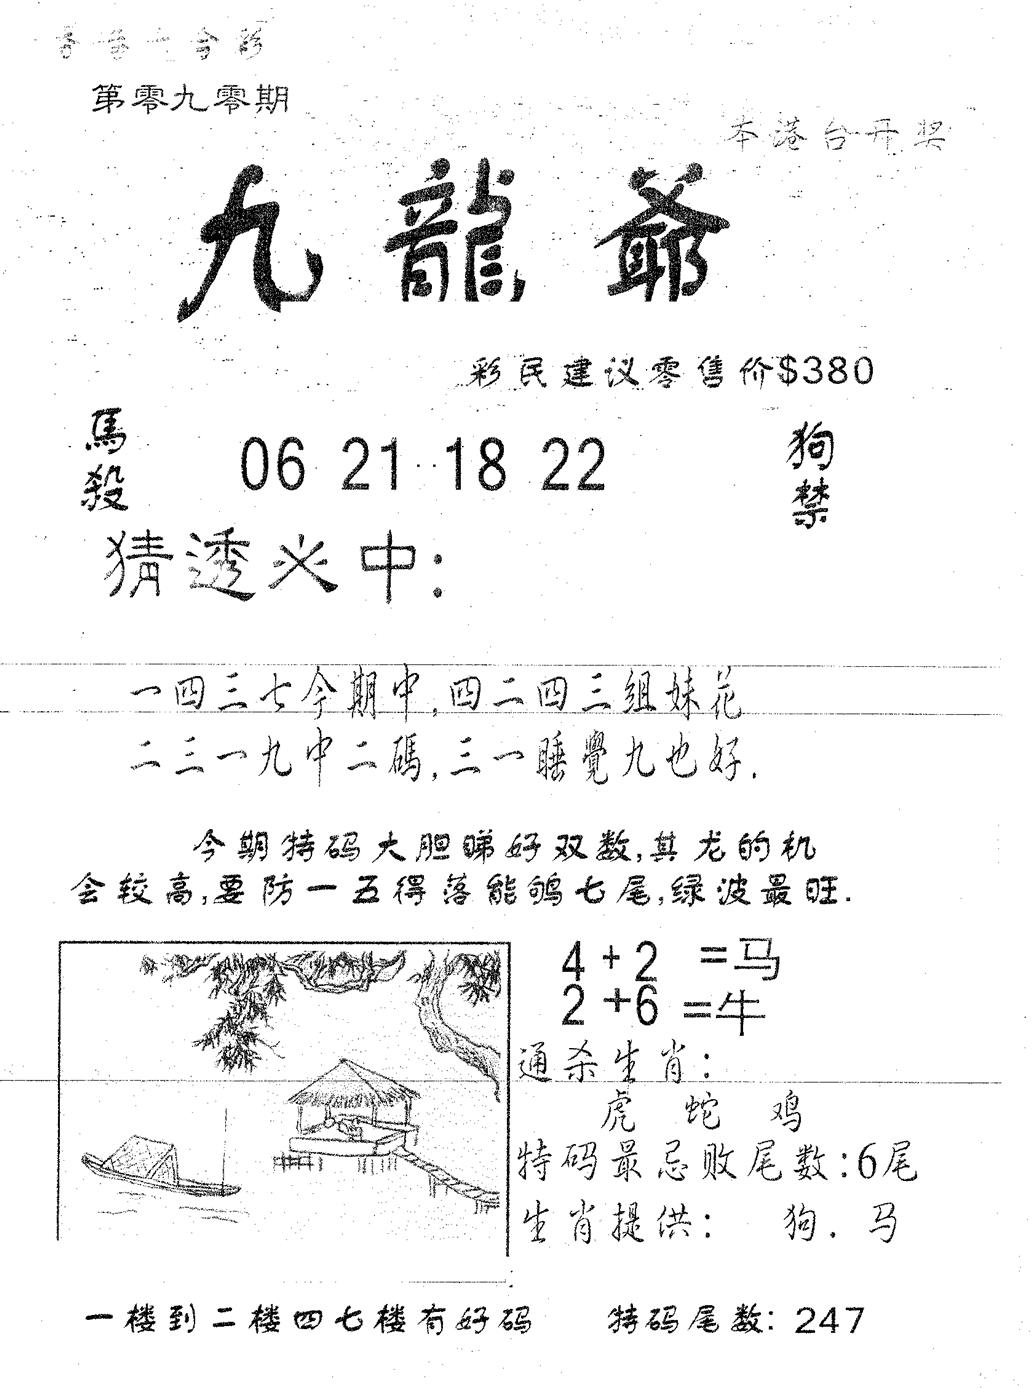 香港六合彩
第零九零期
本港台开奖
九龍爺
彩民建议零售价$380
馬殺
06 21 18 22
狗禁
猜透必中:
一四三七今期中,四二四三组妹花
二三一九中二碼,三一睡覺九也好.
今期特码大胆睇好双数,其龙的机
会较高,要防一五得落能鸲七尾,绿波最旺.
4+2 =马
2+6 =牛
通杀生肖:
虎 蛇 鸡
特码最忌败尾数:6尾
生肖提供: 狗.马
一楼到二楼四七楼有好码 特码尾数: 247